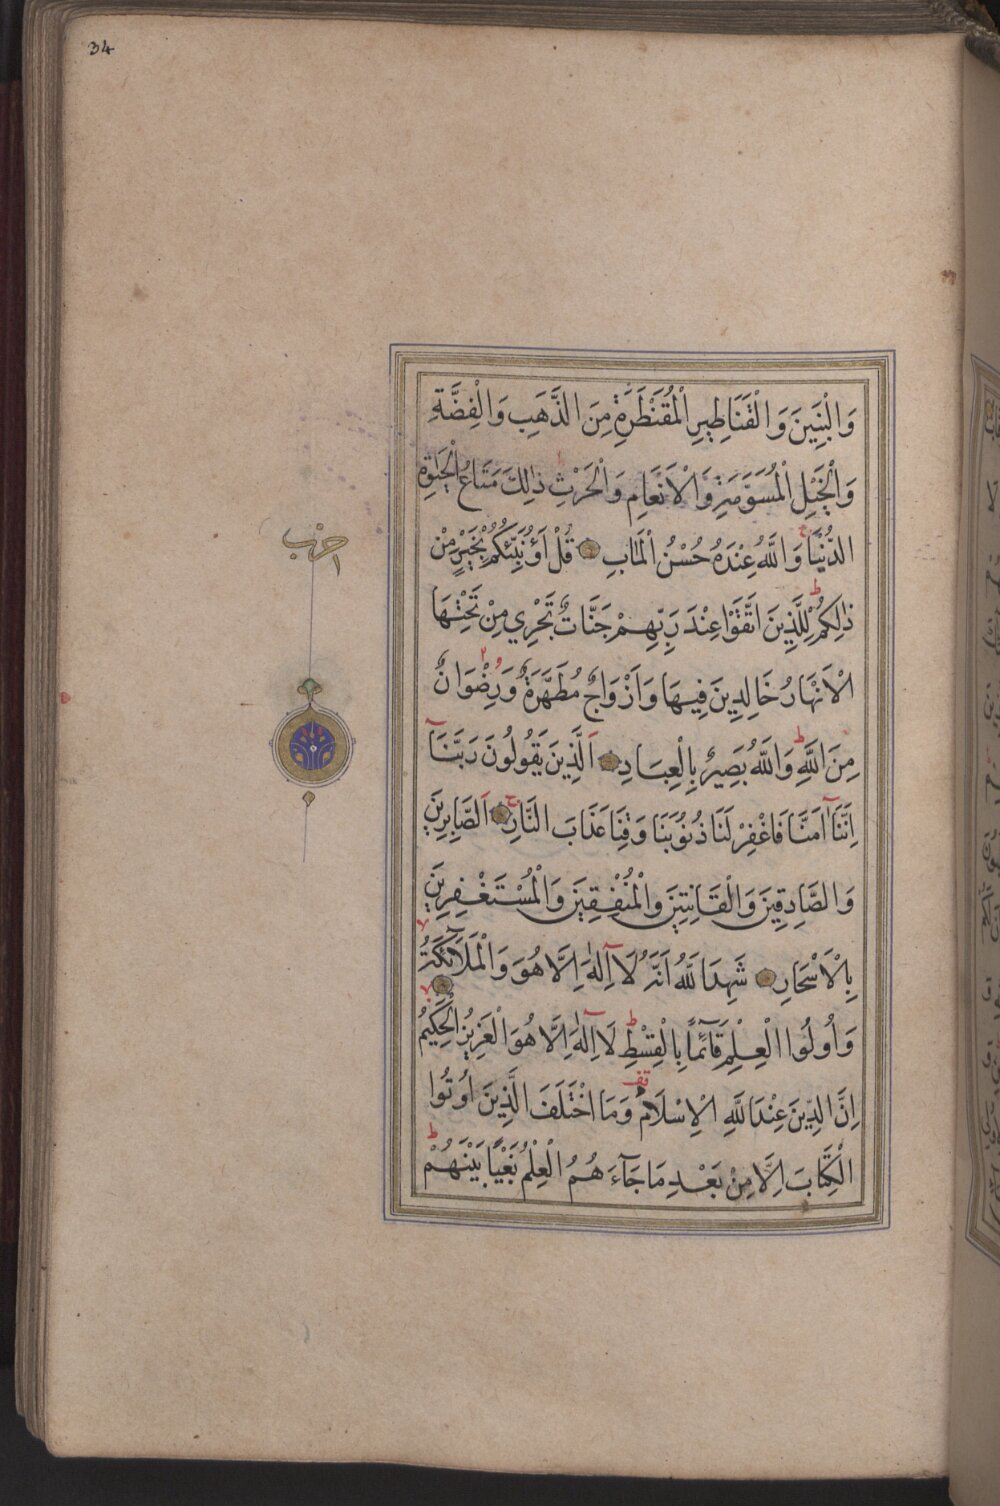 34
وَالْبَنِينَ وَالْقَنَاطِيرِ الْمُقَنْطَرَةِ مِنَ الذَّهَبِ وَالْفِضَّةِ
وَالْخَيْلِ الْمُسَوَّمَةِ وَالْاَنْعَامِ وَالْحَرْثِ ذٰلِكَ مَتَاعُ الْحَيٰوةِ
الدُّنْيَا وَاللّٰهُ عِنْدَهُ حُسْنُ الْمَاٰبِ قُلْ اَؤُنَبِّئُكُمْ بِخَيْرٍ مِنْ
ذٰلِكُمْ لِلَّذِينَ اتَّقَوْا عِنْدَ رَبِّهِمْ جَنَّاتٌ تَجْرِي مِنْ تَحْتِهَا
الْاَنْهَارُ خَالِدِينَ فِيهَا وَاَزْوَاجٌ مُطَهَّرَةٌ وَرِضْوَانٌ
مِنَ اللّٰهِ وَاللّٰهُ بَصِيرٌ بِالْعِبَادِ اَلَّذِينَ يَقُولُونَ رَبَّنَا
اِنَّنَا اٰمَنَّا فَاغْفِرْ لَنَا ذُنُوبَنَا وَقِنَا عَذَابَ النَّارِ اَلصَّابِرِينَ
وَالصَّادِقِينَ وَالْقَانِتِينَ وَالْمُنْفِقِينَ وَالْمُسْتَغْفِرِينَ
بِالْاَسْحَارِ شَهِدَ اللّٰهُ اَنَّهُ لَا اِلٰهَ اِلَّا هُوَ وَالْمَلَآئِكَةُ
وَاُولُوا الْعِلْمِ قَآئِمًا بِالْقِسْطِ لَا اِلٰهَ اِلَّا هُوَ الْعَزِيزُ الْحَكِيمُ
اِنَّ الدِّينَ عِنْدَ اللّٰهِ الْاِسْلَامُ وَمَا اخْتَلَفَ الَّذِينَ اُوتُوا
الْكِتَابَ اِلَّا مِنْ بَعْدِ مَا جَآءَهُمُ الْعِلْمُ بَغْيًا بَيْنَهُمْ
حزب